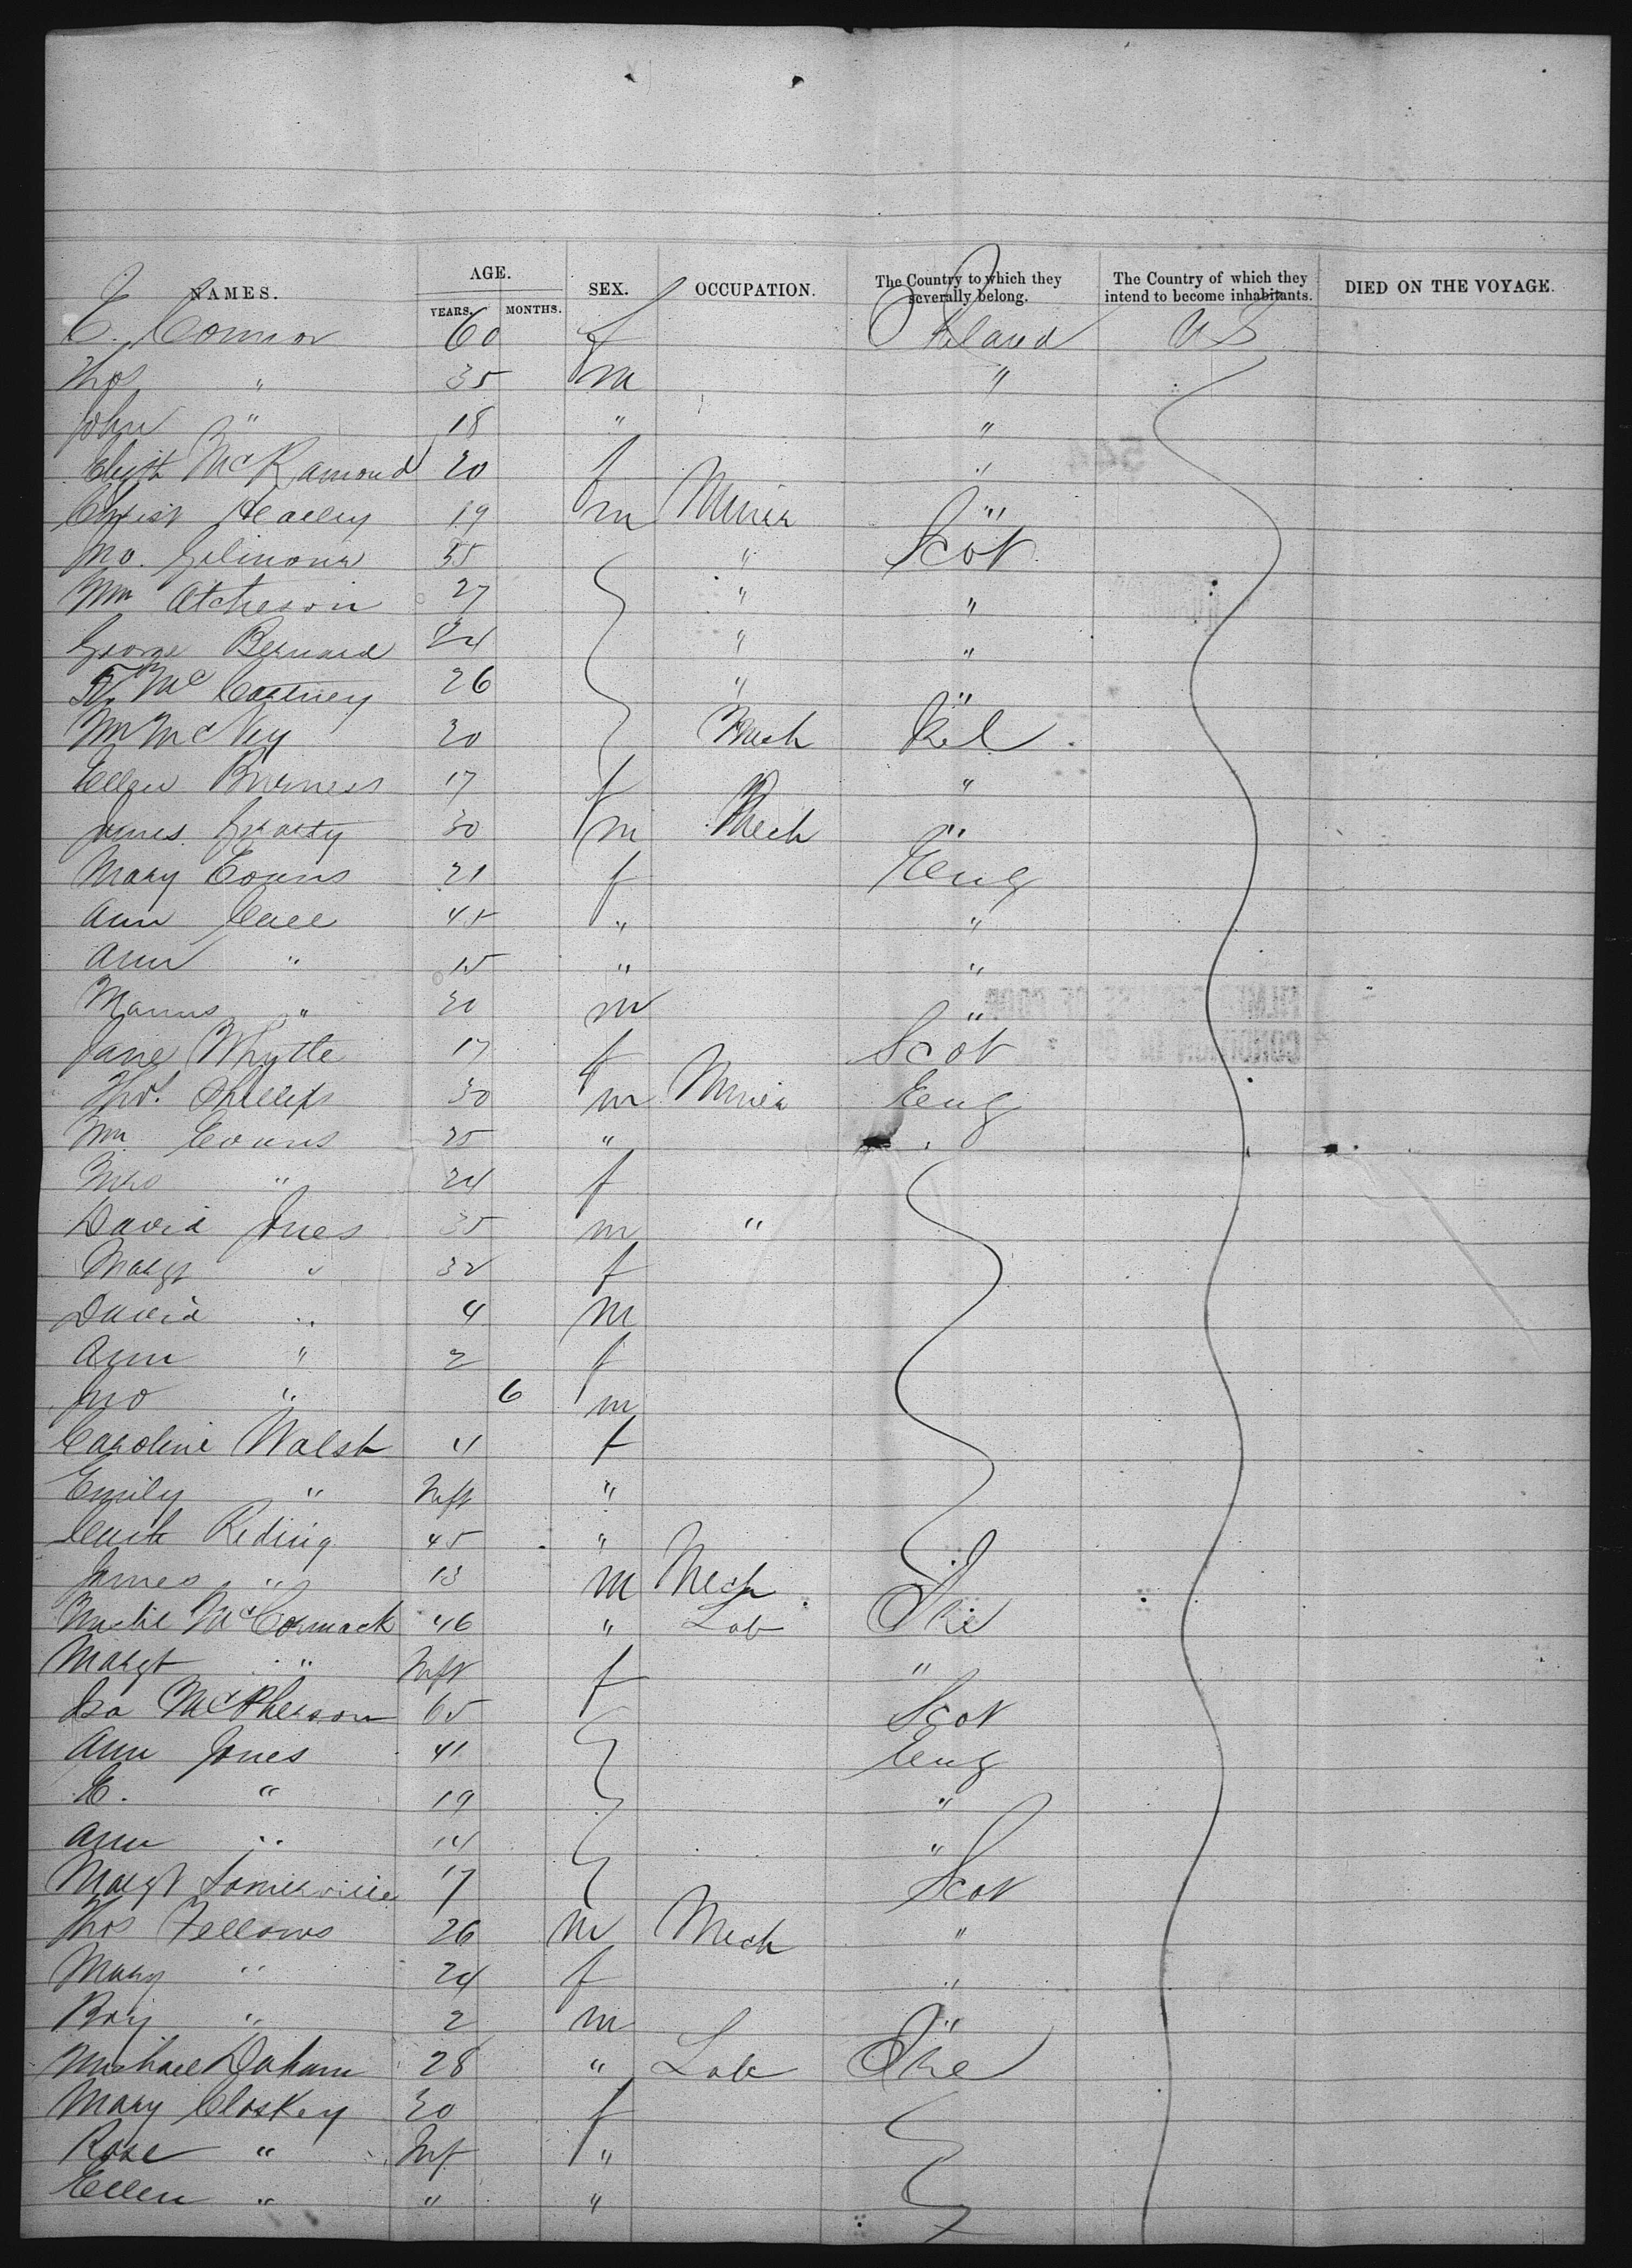 NAMES. AGE. YEARS. MONTHS. SEX. OCCUPATION. The Country to which they severally belong. The Country of which they intend to become inhabitants. DIED ON THE VOYAGE.
C. Connor 60 f Ireland US
Thos " 35 m "
John " 18 " "
Elizth McRamond 20 f "
Christ Healey 19 m Miner "
Jno. Gilmour 35 " Scot
Wm Atcheson 27 " "
George Bernard 24 " "
McCartney 26 " "
Wm McVey 30 Mech Irel
Ellen Burness 17 f "
James Geraty 30 m Mech "
Mary Evans 21 f Eng
Ann Call 45 " "
Ann " 15 " "
Manus " 20 m "
Jane Whytte 17 f Scot
Thos. Phillips 30 m Miner Eng
Wm Evans 25 "
Mrs " 24 f
David Jones 35 m "
Margt " 32 f
David " 4 m
Ann " 2 f
Jno " 6 m
Caroline Walsh 4 f
Emily " Inft "
Riding 45 "
James " 13 m Mech
McCormack 46 " Lab Ire
Margt " Inft f "
Isa McPherson 65 Scot
Ann Jones 41 Eng
E. " 19 "
Ann " 14 "
Margt Somerville 17 Scot
Thos Fellows 26 m Mech "
Mary " 24 f "
Boy " 2 m "
Michael Daham 28 " Lab Ire
Mary Closkey 30 f
Rose " Inf "
Ellen " " "